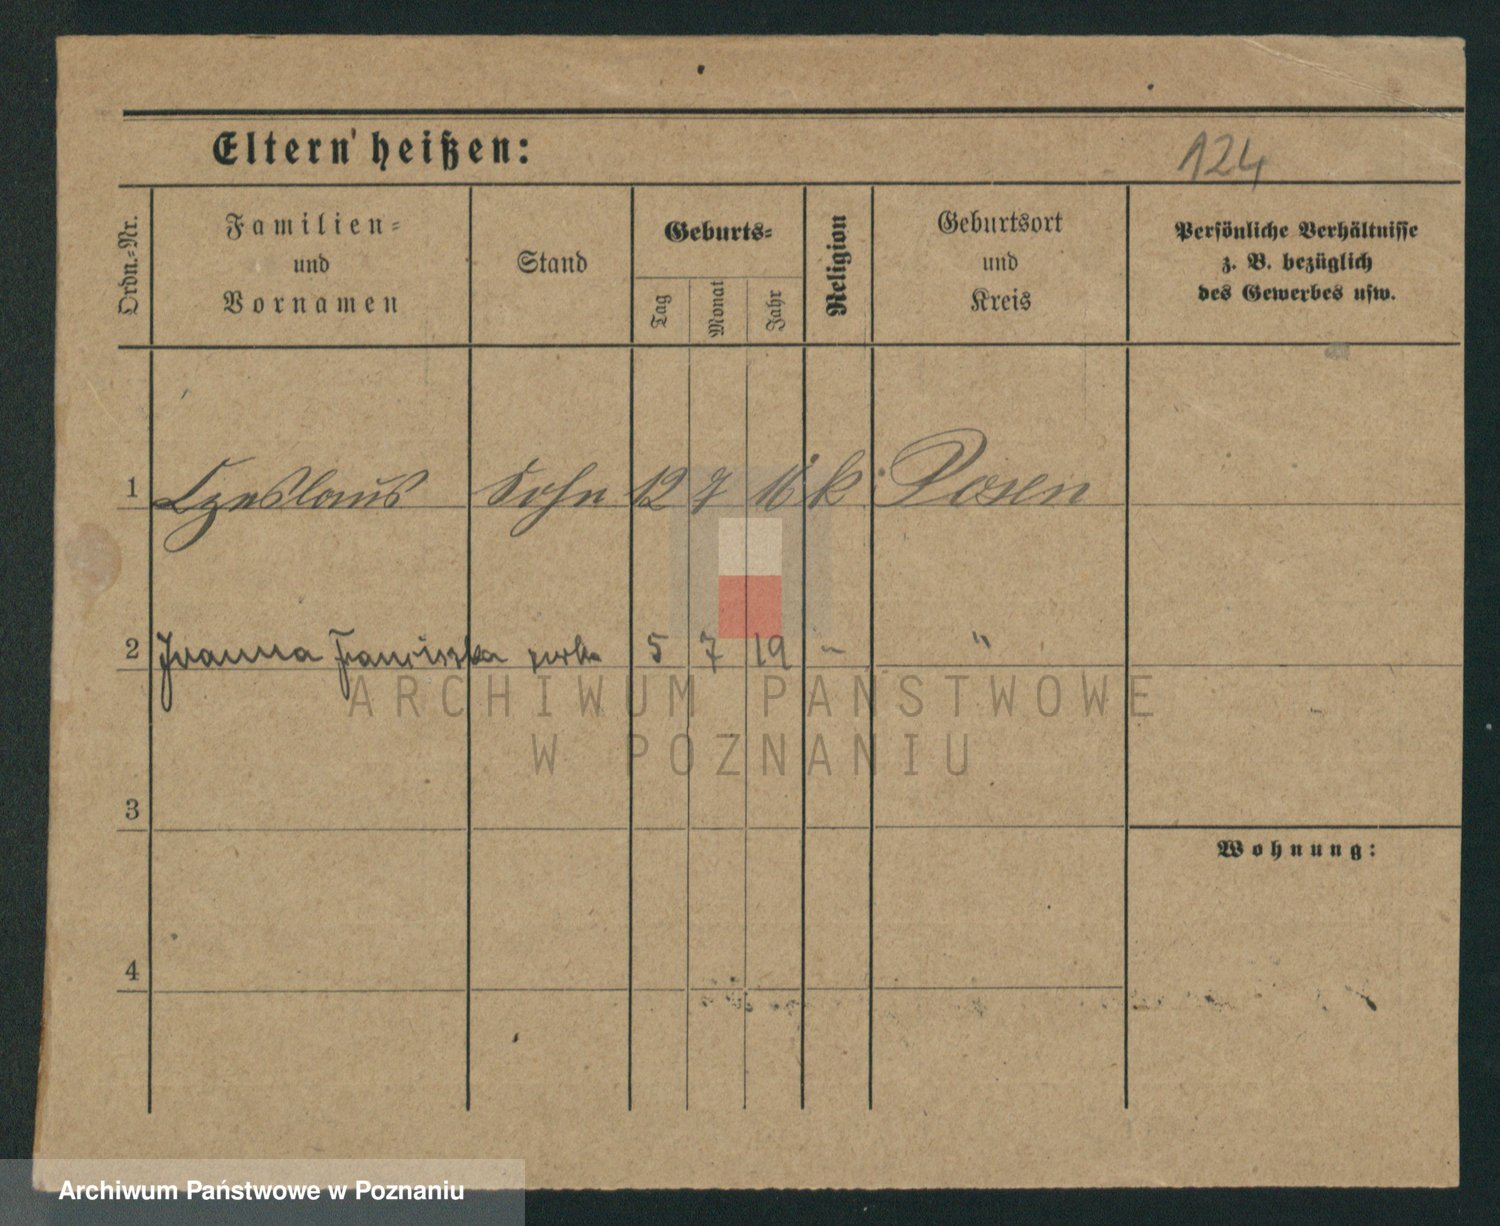 Eltern heißen:
124
Ordn.-Nr.
Familien-
und
Vornamen
Stand
Geburts-
Tag
Monat
Jahr
Religion
Geburtsort
und
Kreis
Persönliche Verhältnisse
z. B. bezüglich
des Gewerbes usw.
1 Czeslaus Sohn 12 7 16 k Posen
2 Joanna Franciszka 5 7 19 - "
3
Wohnung:
4
ARCHIWUM PAŃSTWOWE
W POZNANIU
Archiwum Państwowe w Poznaniu